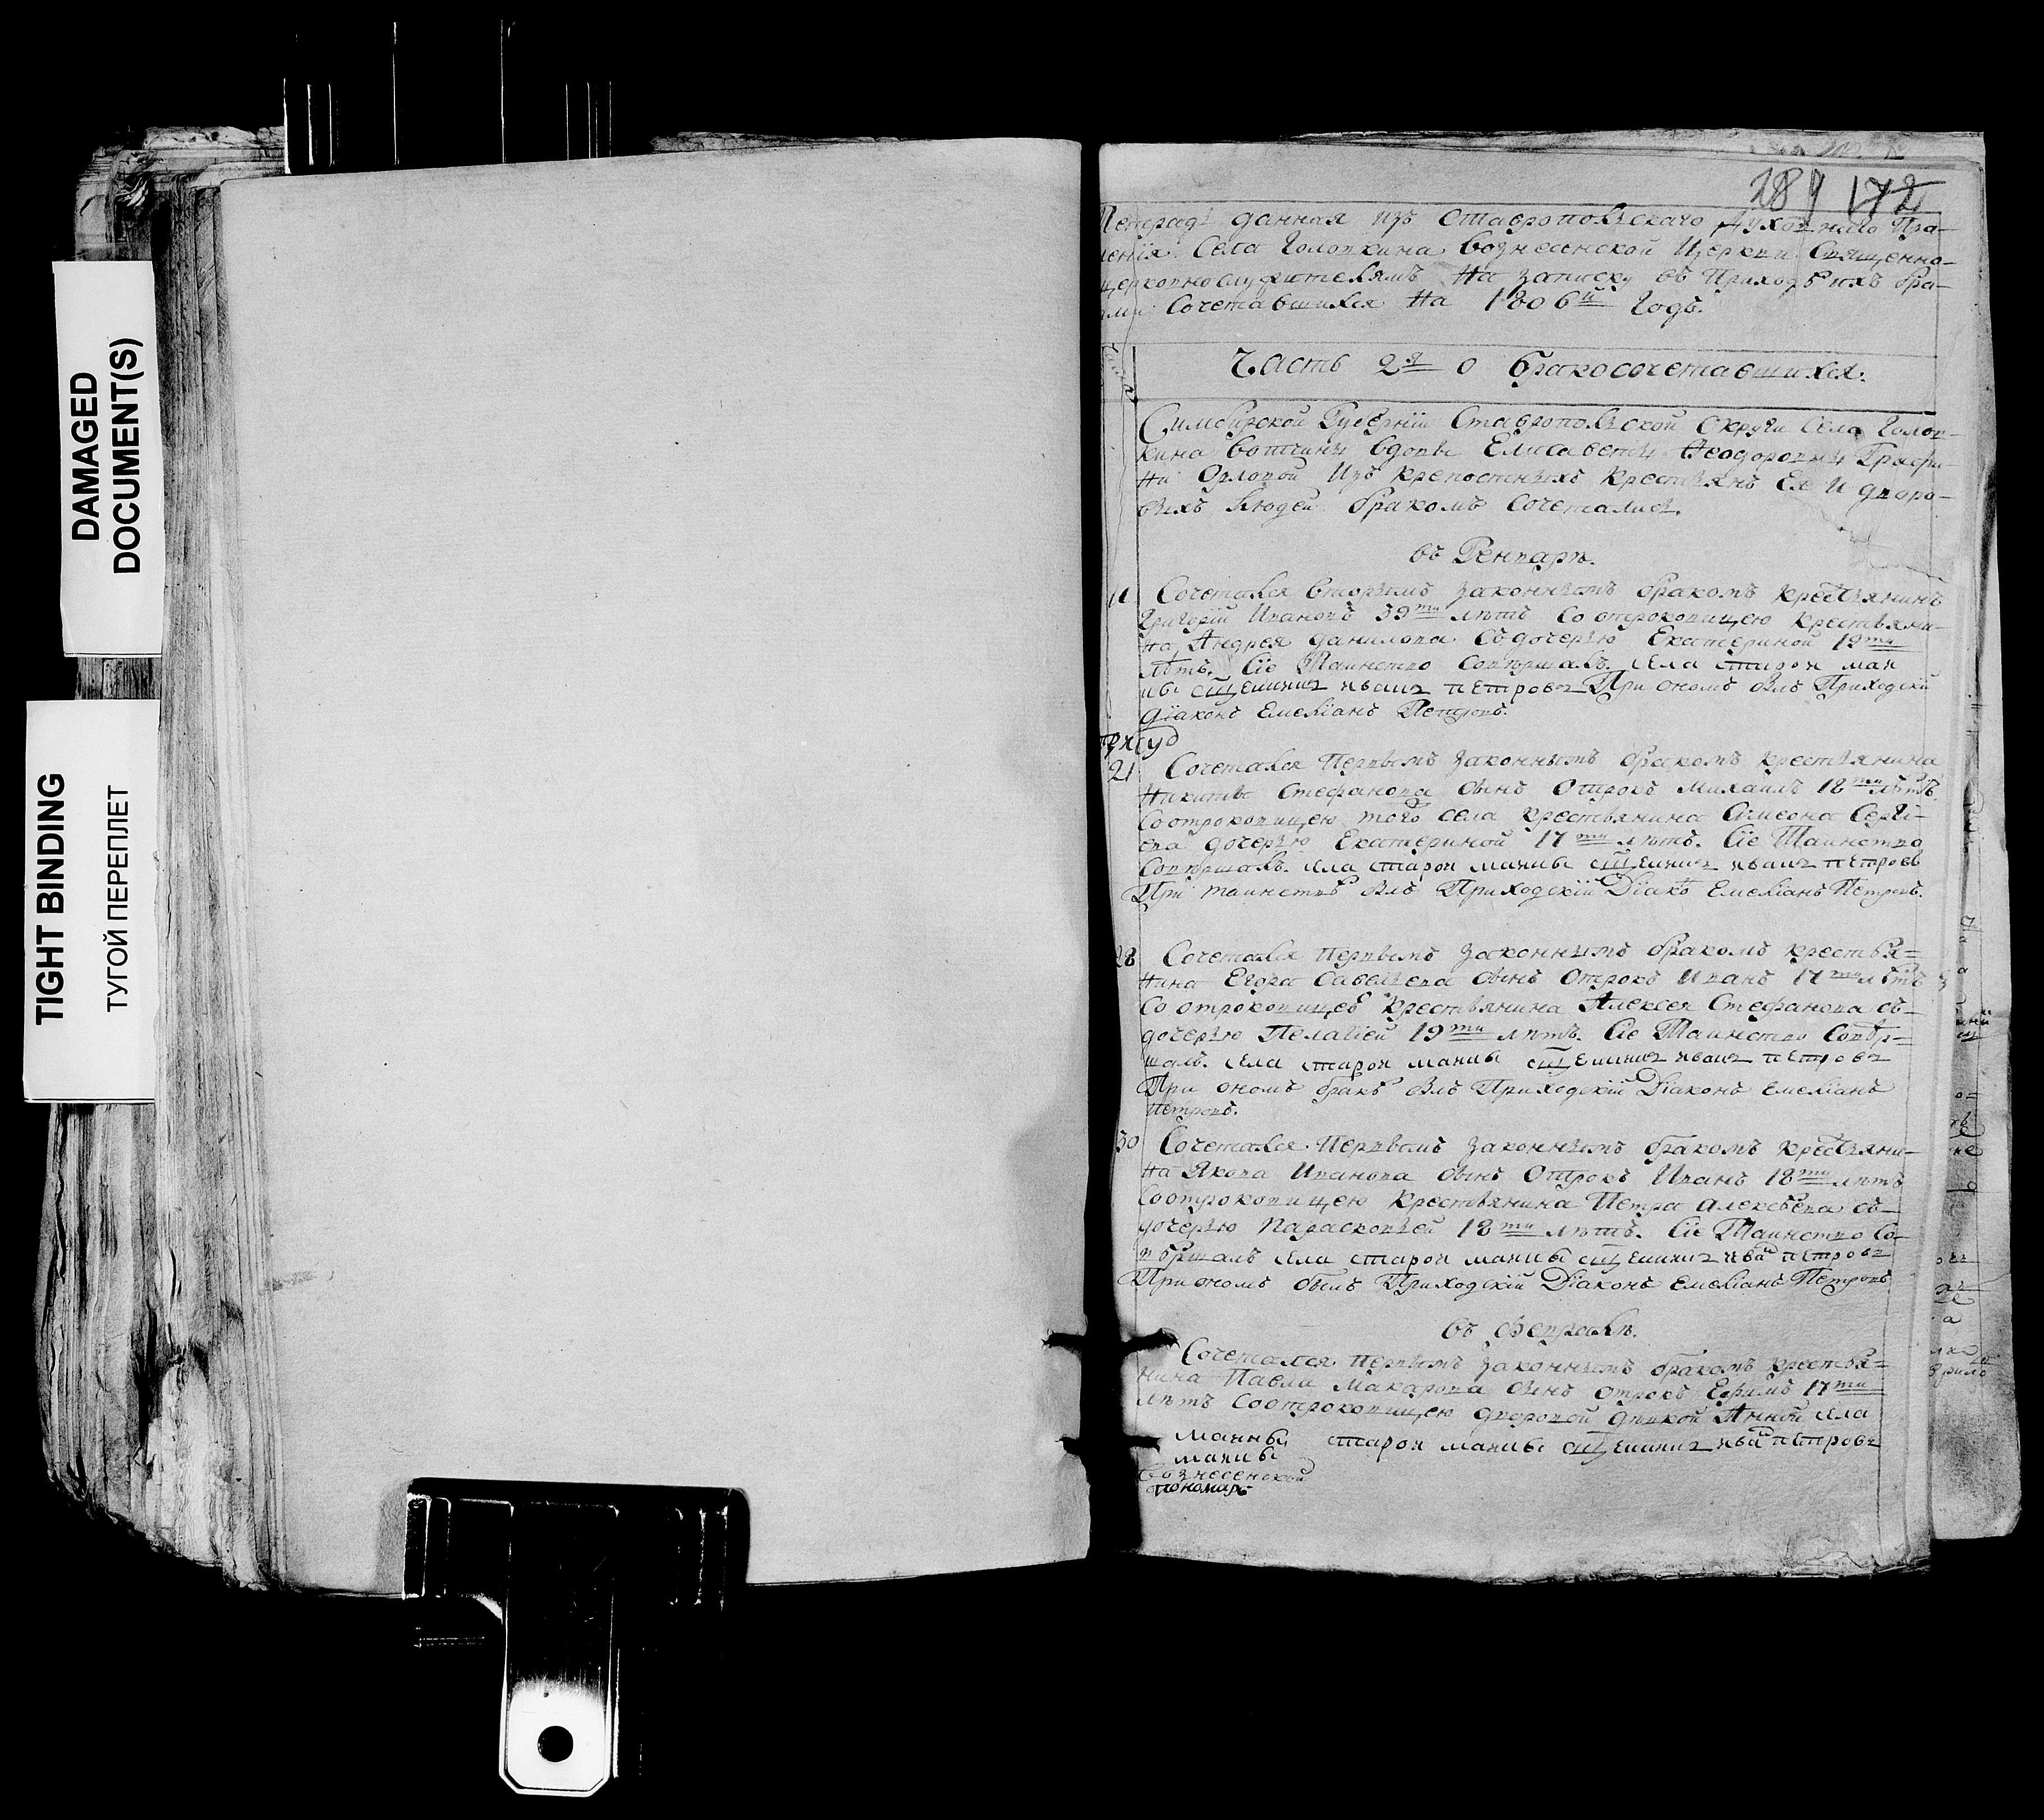 DAMAGED
DOCUMENT(S)
TIGHT BINDING
ТУГОЙ ПЕРЕПЛЕТ
189 172
Тетрадь данная изъ Ставропольскаго Духовнаго Пра-
ленія Села Головкина Вознесенской Церкви Священно-
церковнослужителямъ На записку въ Приходѣ ихъ бра-
ами Сочетавшихся На 1806й Годъ.
Часть 2я о бракосочетавшихся.
Симбирской Губерніи Ставропольской Округи Села Голов-
кина вотчины вдовы Елисаветы Ѳеодоровны Графи-
ни Орловой Изъ крепостныхъ крестьянъ Ея и дворо-
выхъ людей бракомъ Сочетались.
въ Генварѣ.
11 Сочетался вторымъ законнымъ бракомъ крестьянинъ
Григорій Ивановъ 39ти лѣтъ Со отроковицею крестьяни-
на Андрея данилова Съ дочерью Екатериной 19ти
лѣтъ. Сіе Таинство Совершалъ. села старои маи
ны сщенникъ иванъ петровъ При ономъ былъ Приходскій
діаконъ Емеліанъ Петровъ.
21 Сочетался Первымъ законнымъ бракомъ крестьянина
Никиты Стефанова сынъ Отрокъ Михаилъ 18ти лѣтъ
Со отроковицею того села крестьянина Симеона Сергѣ-
ева дочерью Екатериной 17ти лѣтъ. Сіе Таинство
Совершалъ. села старои маины сщенникъ иванъ петровъ
При таинствѣ былъ Приходскій Діаконъ Емеліанъ Петровъ.
28 Сочетался Первымъ законнымъ бракомъ крестья=
нина Егора Савельева сынъ Отрокъ Иванъ 17ти лѣтъ
Со отроковицеѣ крестьянина Алексея Стефанова съ-
дочерью Пелагіей 19ти лѣтъ. Сіе Таинство Совѣр=
шалъ. села старои маины сщенникъ иванъ петровъ
При ономъ бракѣ былъ Приходскій Діаконъ Емеліанъ
Петровъ.
30 Сочетался Первымъ законнымъ бракомъ крестьяни-
на Якова Иванова сынъ Отрокъ Иванъ 18ти лѣтъ
Со отроковицею крестьянина Петра Алексѣева съ-
дочерью Парасковьей 18ти лѣтъ. Сіе Таинство Со-
вѣршалъ села старои маины сщенникъ иванъ петровъ
При ономъ былъ Приходскій Діаконъ Емеліанъ Петровъ
въ Февралѣ.
Сочетался Первымъ законнымъ бракомъ крестья=
нина Павла Макарова сынъ отрокъ Ефимъ 17ти
лѣтъ Со отроковицею дворовой дѣвкой Анной села
маины старои маины сщенникъ иванъ петровъ
маины
вознесенской
пономарь